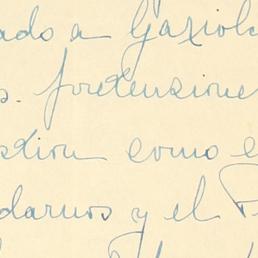 ado a Gaxiola
s. pretensione
stion como e
darnos y el P